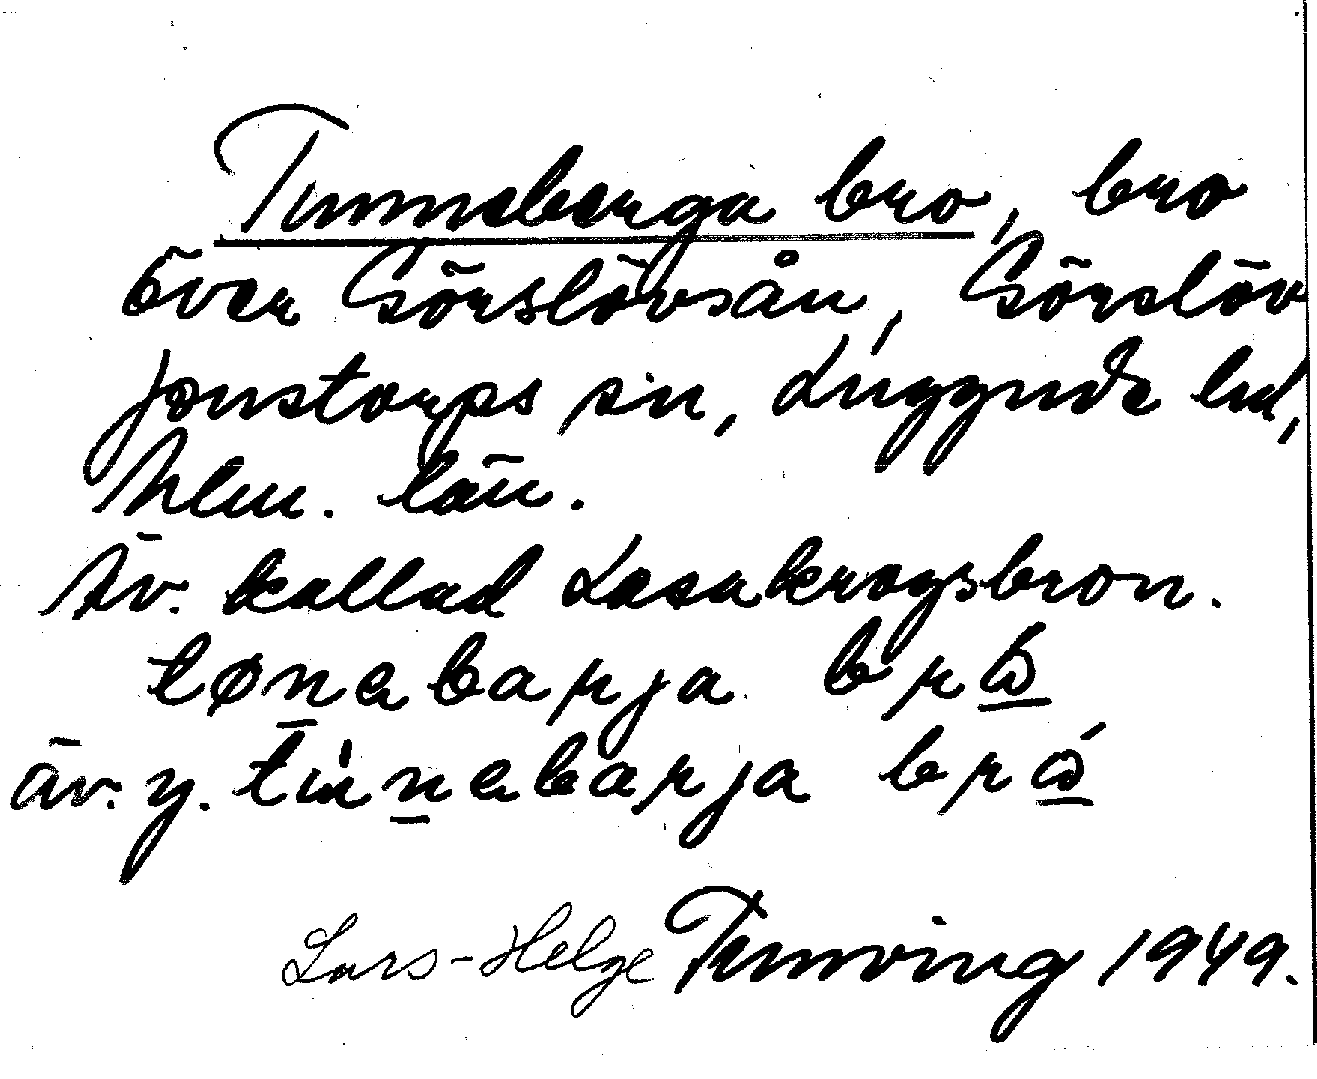 Tunneberga bro, bro
över Görslövsån, Görslöv
Jonstorps sn, Luggude hd,
Mlm. län.
Äv. kallad Lasakrogsbron.
tønabarja brω
äv. y. túnnabarja brώ
Lars-Helge Tunving 1949.